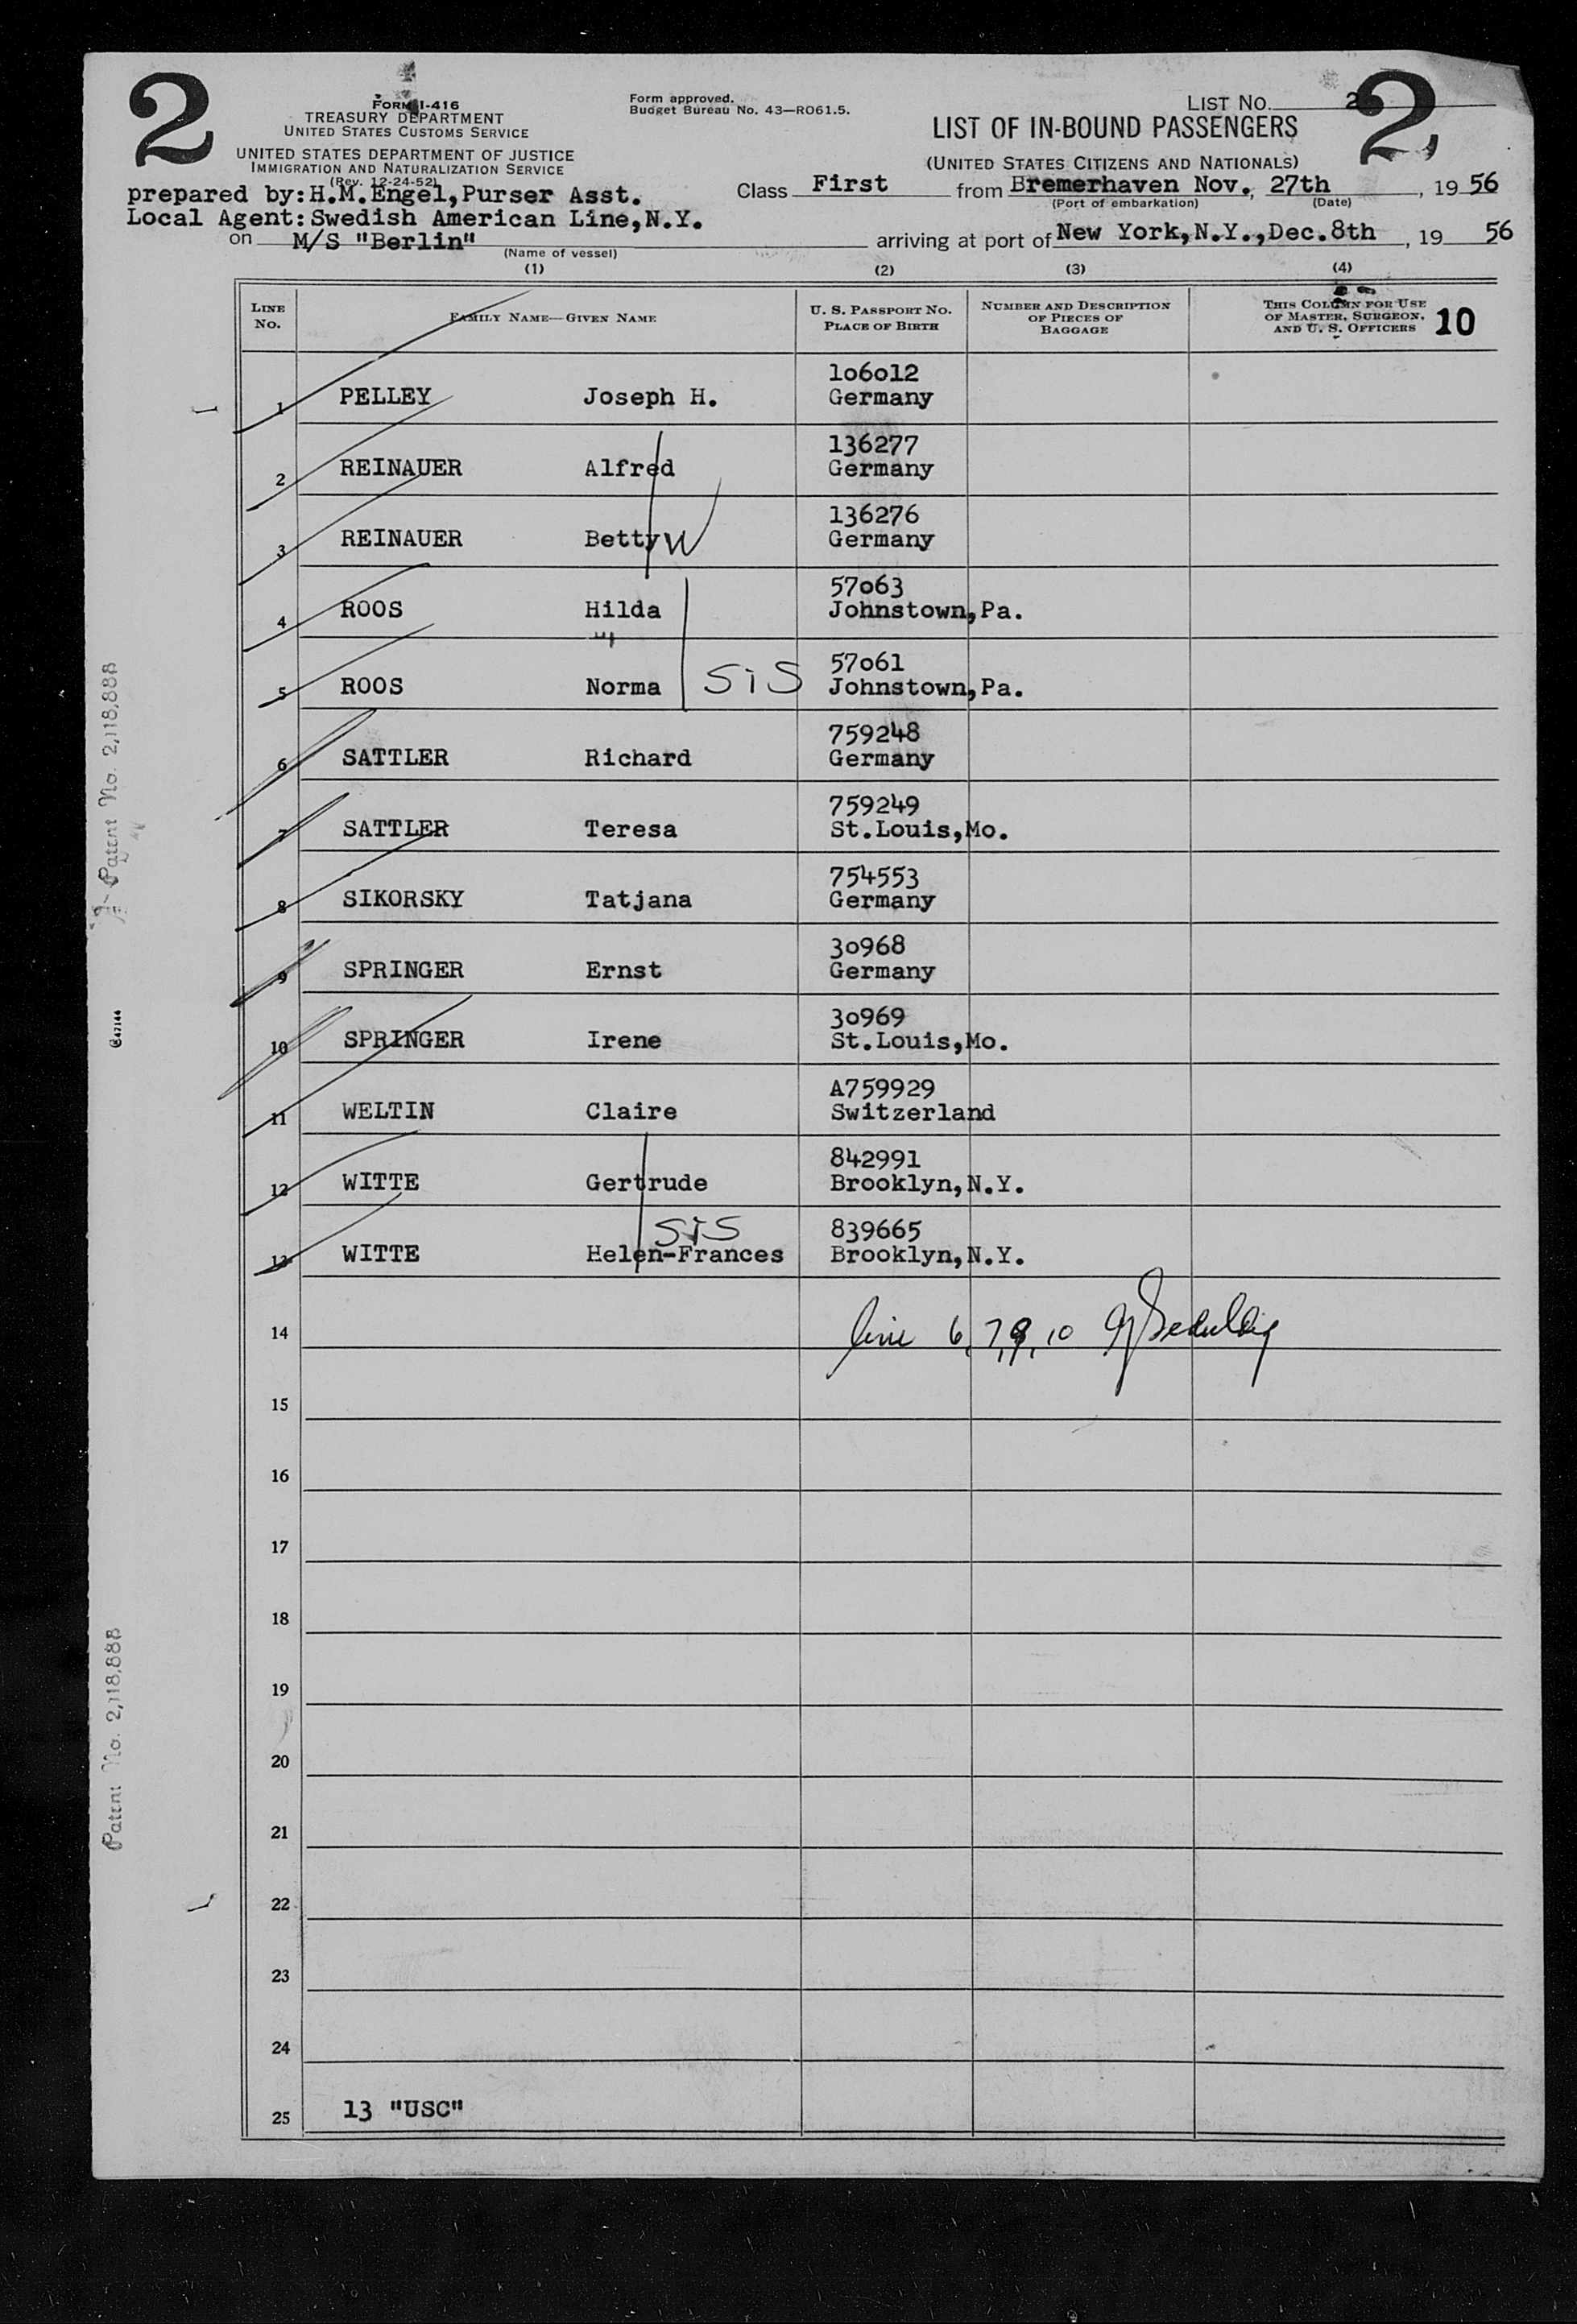 2
2
FORM I-416
TREASURY DEPARTMENT
UNITED STATES CUSTOMS SERVICE
UNITED STATES DEPARTMENT OF JUSTICE
IMMIGRATION AND NATURALIZATION SERVICE
(Rev. 12-24-52)
Form approved.
Budget Bureau No. 43—RO61.5.
LIST NO. 2
LIST OF IN-BOUND PASSENGERS
(UNITED STATES CITIZENS AND NATIONALS)
prepared by:H.M.Engel,Purser Asst.
Local Agent:Swedish American Line,N.Y.
Class First from Bremerhaven Nov., 27th, 19 56
(Port of embarkation) (Date)
on M/S "Berlin" arriving at port of New York,N.Y.,Dec.8th, 19 56
(Name of vessel)
(1) (2) (3) (4)
LINE NO.
FAMILY NAME—GIVEN NAME
U. S. PASSPORT NO.
PLACE OF BIRTH
NUMBER AND DESCRIPTION
OF PIECES OF
BAGGAGE
THIS COLUMN FOR USE
OF MASTER, SURGEON,
AND U. S. OFFICERS
10
106012
1 PELLEY Joseph H. Germany
136277
2 REINAUER Alfred Germany
136276
3 REINAUER Betty W Germany
57063
4 ROOS Hilda Johnstown,Pa.
57061
5 ROOS Norma SiS Johnstown,Pa.
759248
6 SATTLER Richard Germany
759249
7 SATTLER Teresa St.Louis,Mo.
754553
8 SIKORSKY Tatjana Germany
30968
9 SPRINGER Ernst Germany
30969
10 SPRINGER Irene St.Louis,Mo.
A759929
11 WELTIN Claire Switzerland
842991
12 WITTE Gertrude Brooklyn,N.Y.
SiS 839665
13 WITTE Helen-Frances Brooklyn,N.Y.
14 line 6,7,9,10
15
16
17
18
19
20
21
22
23
24
25 13 "USC"
Patent No. 2,118,888
Patent No. 2,118,888